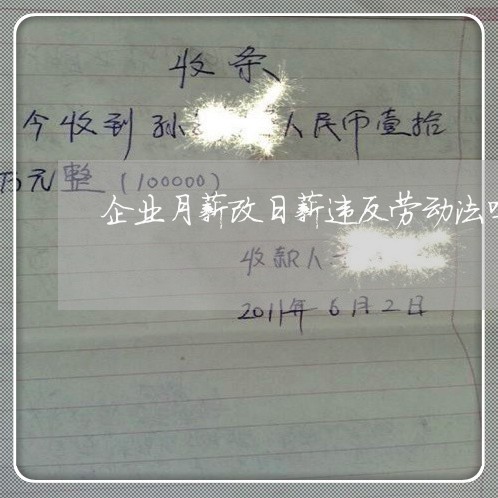 收条
今收到孙 人民币壹拾
万元整（100000）
企业月薪改日薪违反劳动法吗
收款人
2011年6月2日